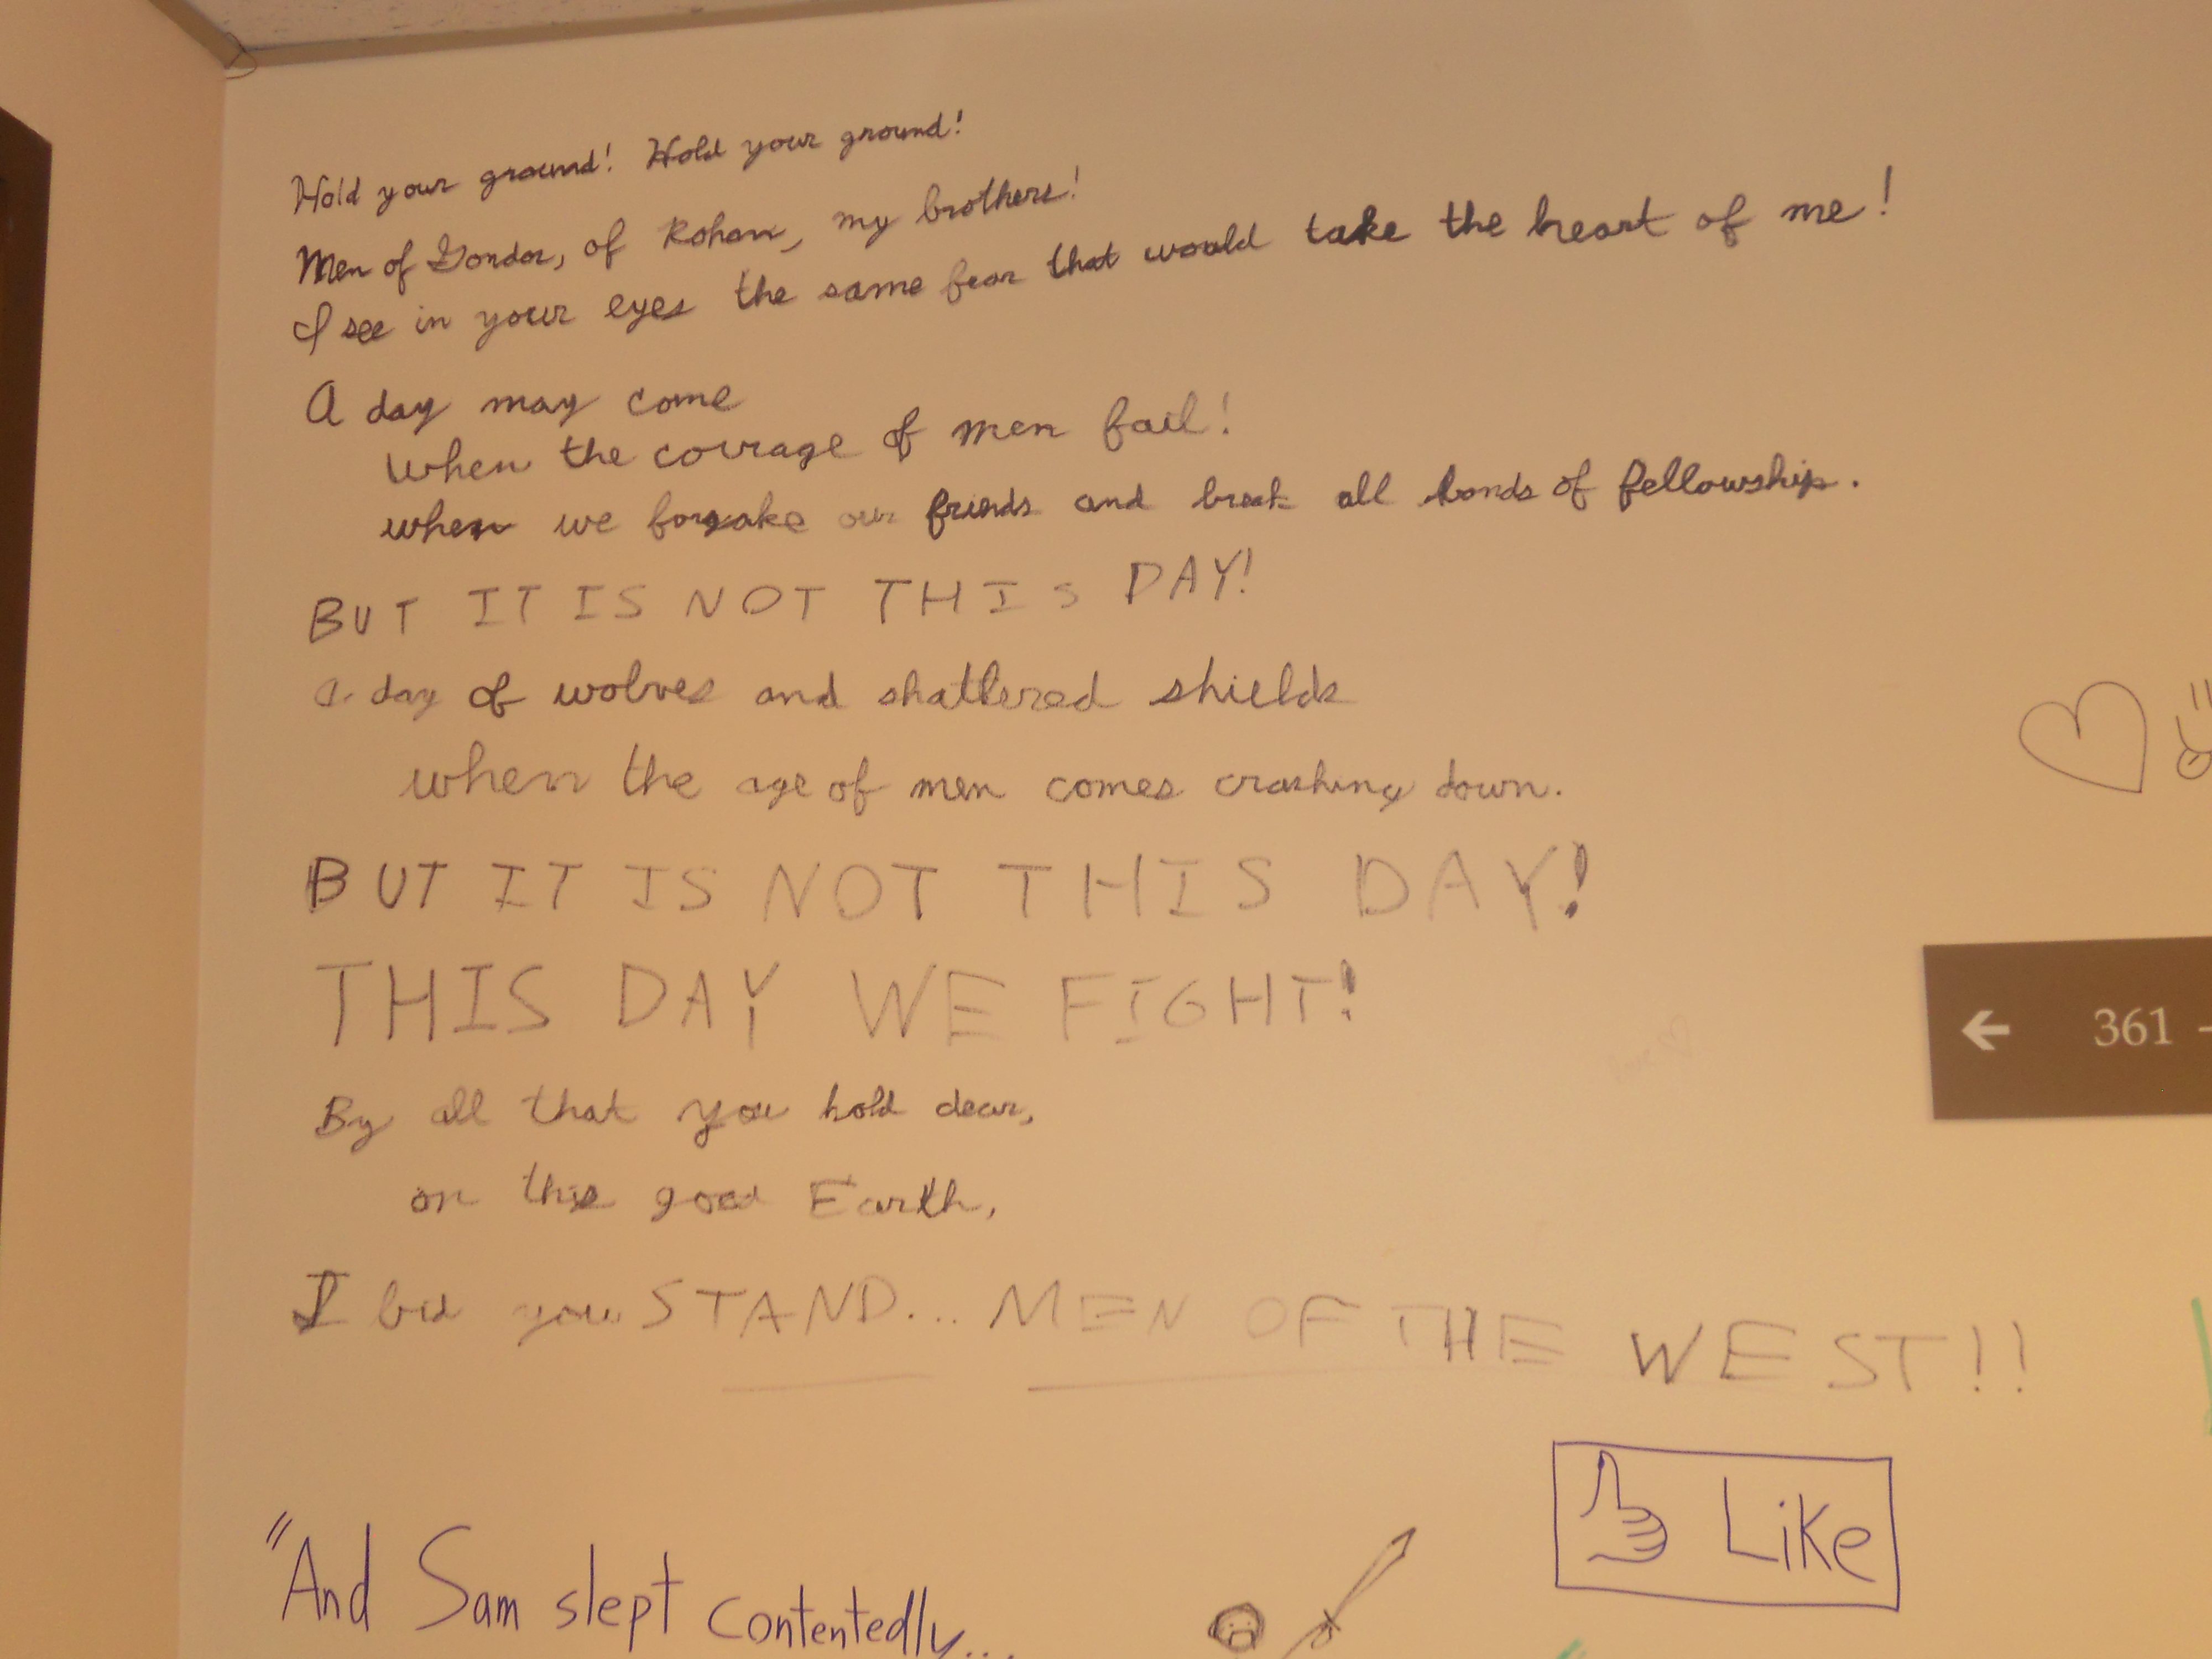 Hold your ground! Hold your ground!
Men of Gondor, of Rohan, my brothers!
I see in your eyes the same fear that would take the heart of me!
A day may come
when the courage of men fail!
when we forsake our friends and break all bonds of fellowship.
BUT IT IS NOT THIS DAY!
a day of wolves and shattered shields
when the age of men comes crashing down.
BUT IT IS NOT THIS DAY!
THIS DAY WE FIGHT!
← 361 -
By all that you hold dear,
on this good Earth,
I bid you STAND... MEN OF THE WEST!!
Like
"And Sam slept contentedly...